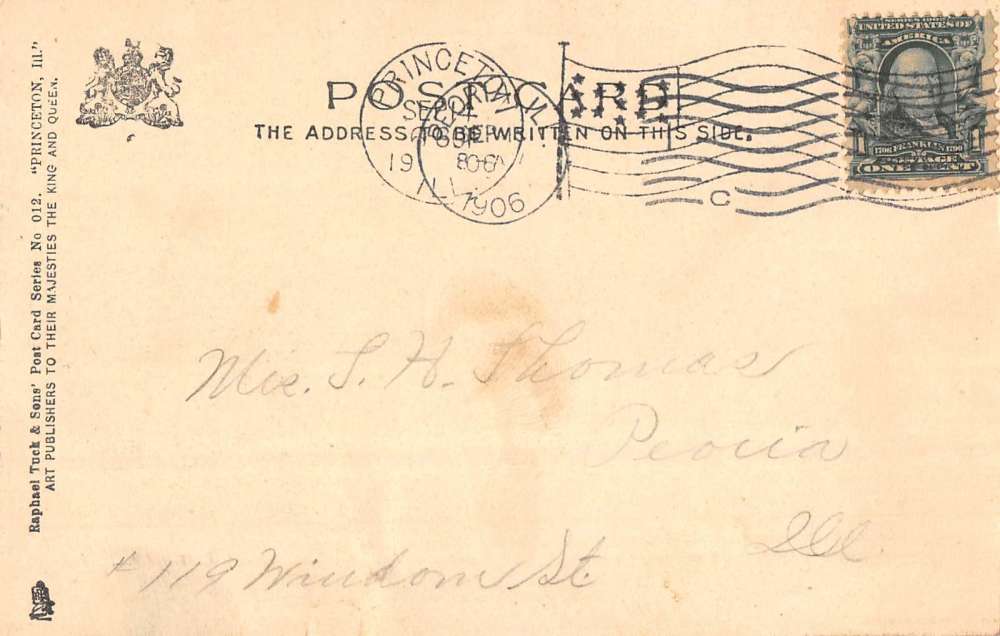 Raphael Tuck & Sons' Post Card Series No 012. "PRINCETON, Ill."
ART PUBLISHERS TO THEIR MAJESTIES THE KING AND QUEEN.
POST CARD
THE ADDRESS TO BE WRITTEN ON THIS SIDE.
PRINCETON
SEP
19
ILL.
1906
C
SERIES 1902
UNITED STATES OF
AMERICA
1706 FRANKLIN 1790
POSTAGE
ONE CENT
Mrs. S. H. Thomas
Peoria
Ill
#119 Windom St.